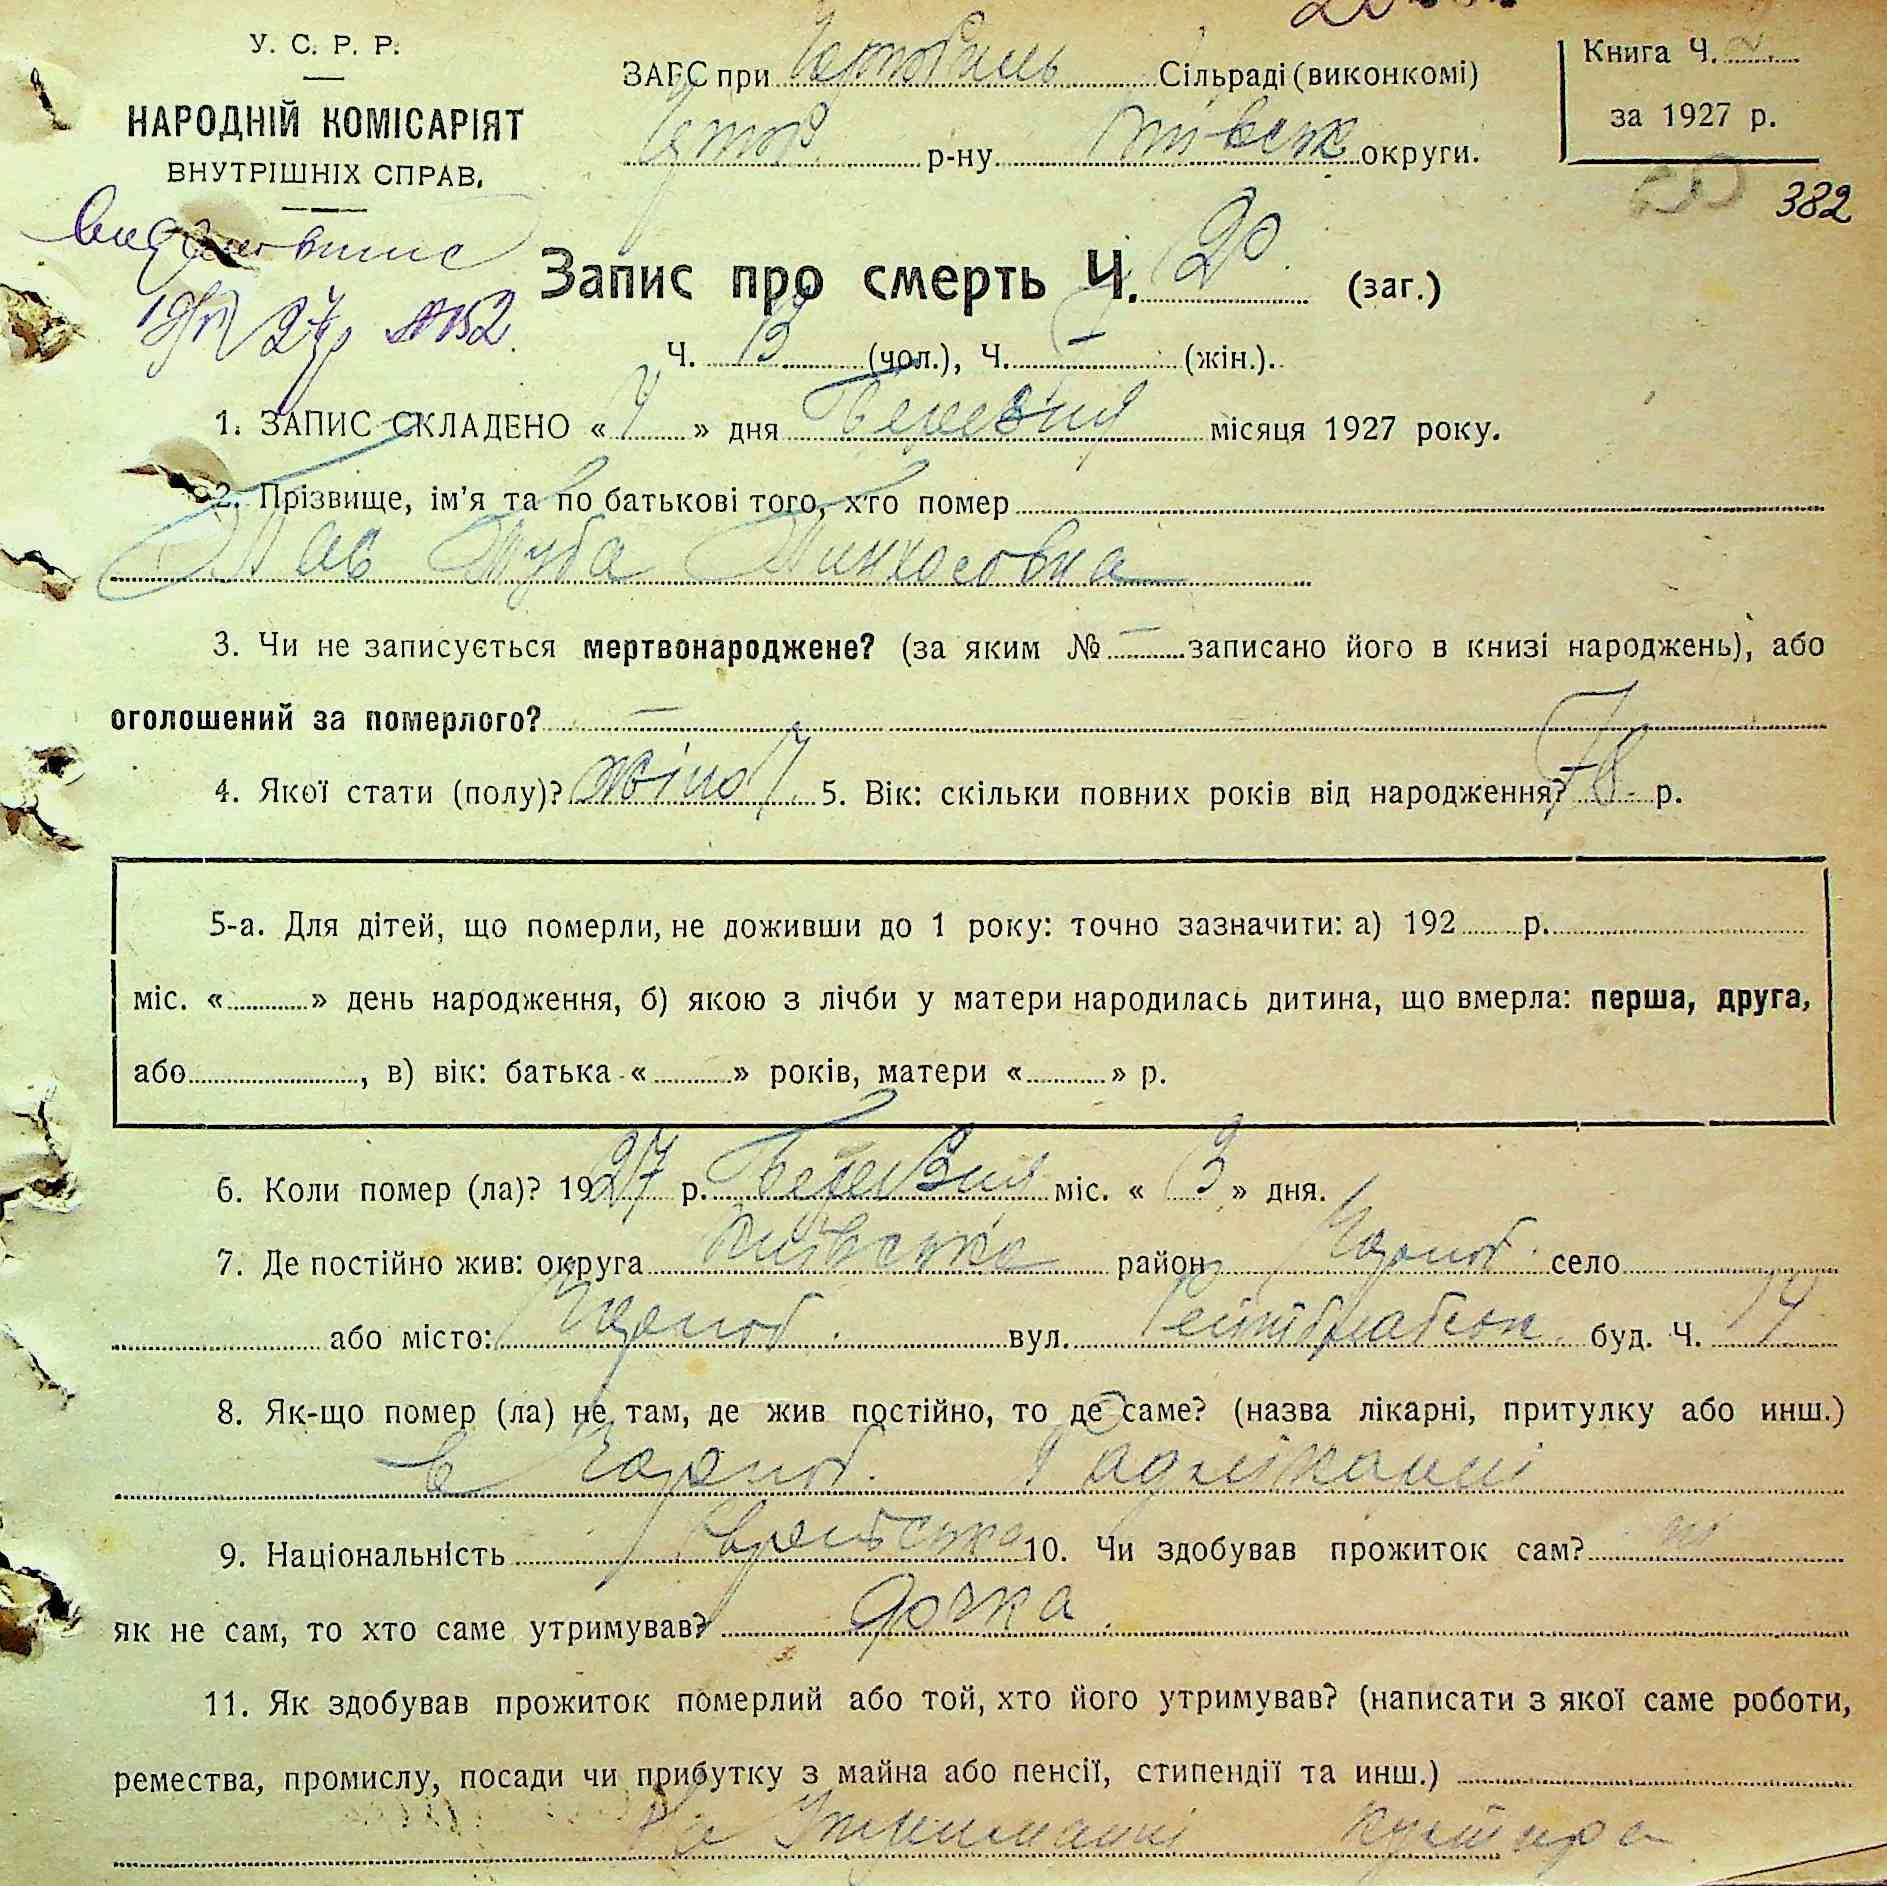 У. С. Р. Р.
НАРОДНІЙ КОМІСАРІЯТ
ВНУТРІШНІХ СПРАВ.
ЗАГС при Чернобиль Сільраді (виконкомі)
р-ну округи.
Книга Ч. 2
за 1927 р.
382
Запис про смерть Ч. 20 (заг.)
Ч. 13 (чол.), Ч. (жін.).
1. ЗАПИС СКЛАДЕНО « 4 » дня Березня місяця 1927 року.
2. Прізвище, ім'я та по батькові того, хто помер
Туба Пинхосовна
3. Чи не записується мертвонароджене? (за яким № — записано його в книзі народжень), або
оголошений за померлого? —
4. Якої стати (полу)? 5. Вік: скільки повних років від народження? 78 р.
5-а. Для дітей, що померли, не доживши до 1 року: точно зазначити: а) 192 р.
міс. « » день народження, б) якою з лічби у матери народилась дитина, що вмерла: перша, друга,
або , в) вік: батька « » років, матери « » р.
6. Коли помер (ла)? 1927 р. Березня міс. « 3 » дня.
7. Де постійно жив: округа Київська район Чорноб. село
або місто: Чорноб. вул. буд. Ч. 14
8. Як-що помер (ла) не там, де жив постійно, то де саме? (назва лікарні, притулку або инш.)
в Чорноб. Радлікарні
9. Національність Єврейська 10. Чи здобував прожиток сам? ні
як не сам, то хто саме утримував? дочка
11. Як здобував прожиток померлий або той, хто його утримував? (написати з якої саме роботи,
ремества, промислу, посади чи прибутку з майна або пенсії, стипендії та инш.)
На утриманні